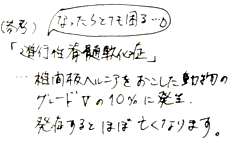 (参考) なったらとても困る…
「進行性脊髄軟化症」
… 椎間板ヘルニアをおこした動物の
グレードⅤの10%に発生.
発症するとほぼ亡くなります。